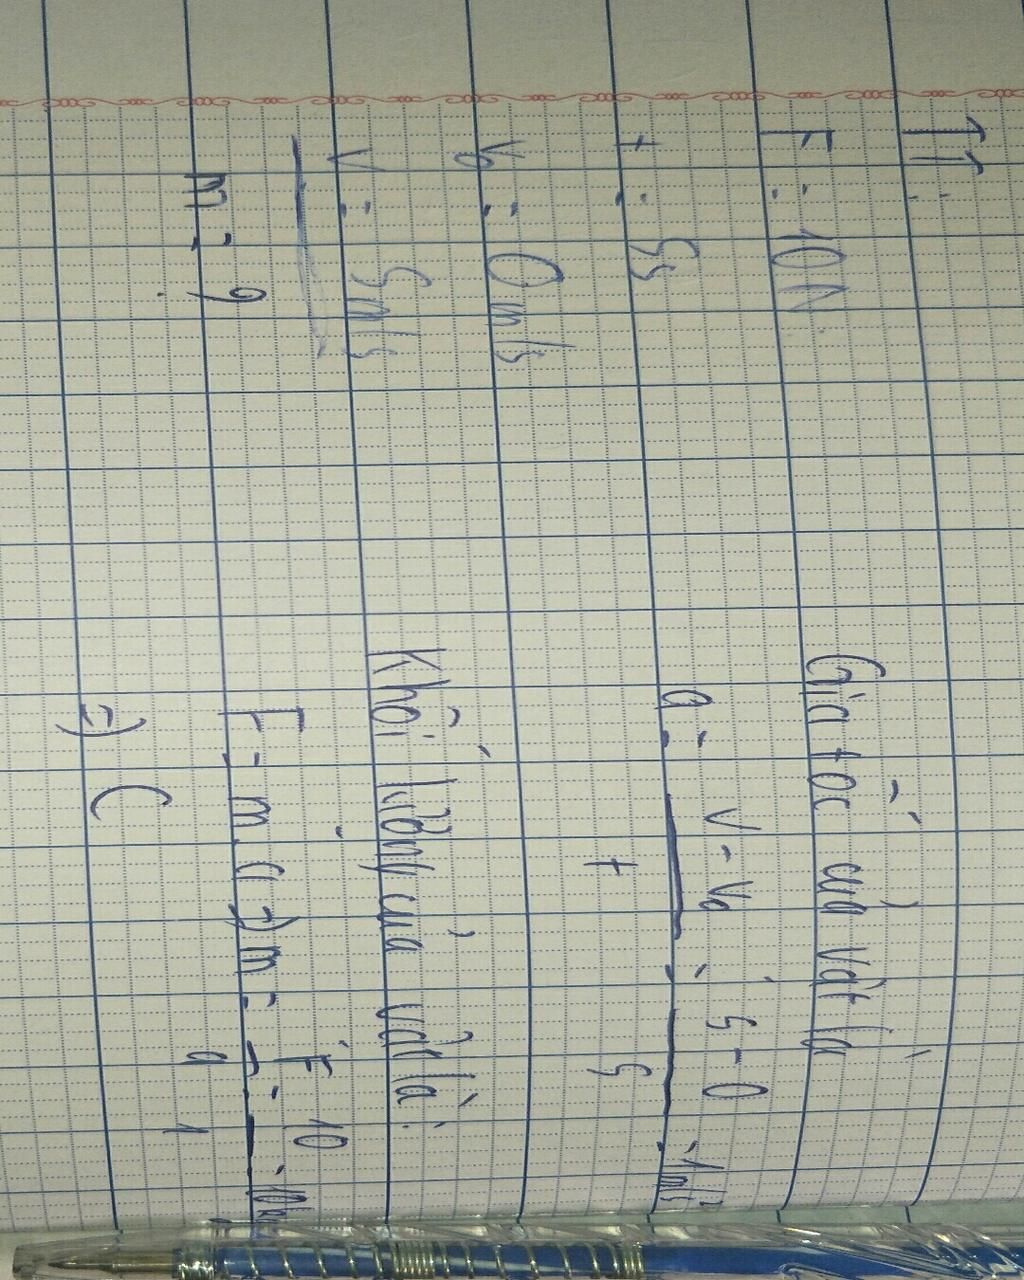 TT:
F = 10N
t = 5s
V₀ = 0 m/s
V = 5m/s
m = ?
Gia tốc của vật là
a = V - V₀ / t = 5 - 0 / 5 = 1m/s²
Khối lượng của vật là:
F = m.a => m = F / a = 10 / 1 = 10kg
=> C